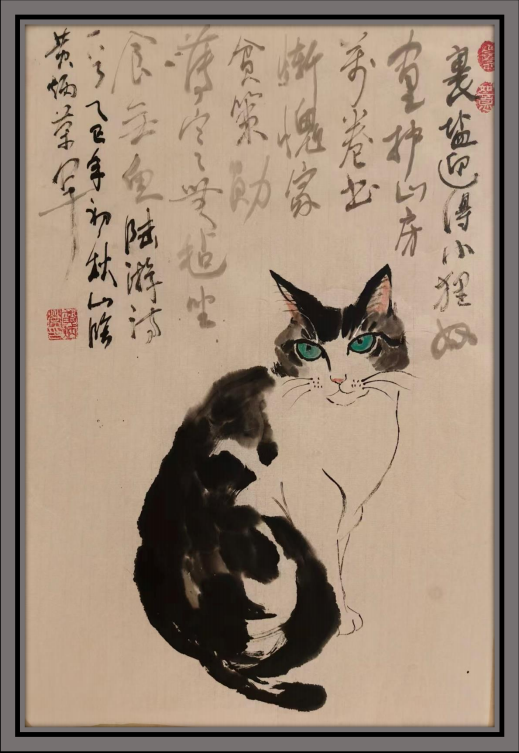 裹盐迎得小狸奴
尽护山房
萬卷书
惭愧家
贫策勋
薄寒無毡坐
食無鱼 陆游诗
乙巳年初秋山阴
黄炳荣写